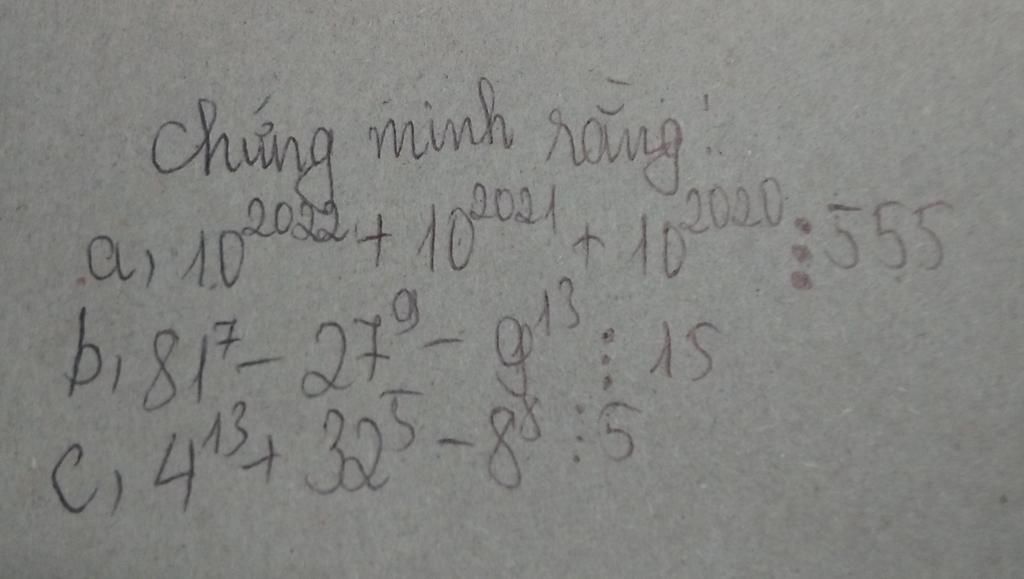 Chứng minh rằng:
a, 10²⁰²² + 10²⁰²¹ + 10²⁰²⁰ ⋮ 555
b, 81⁷ - 27⁹ - 9¹³ ⋮ 15
c, 4¹³ + 32⁵ - 8⁸ ⋮ 5